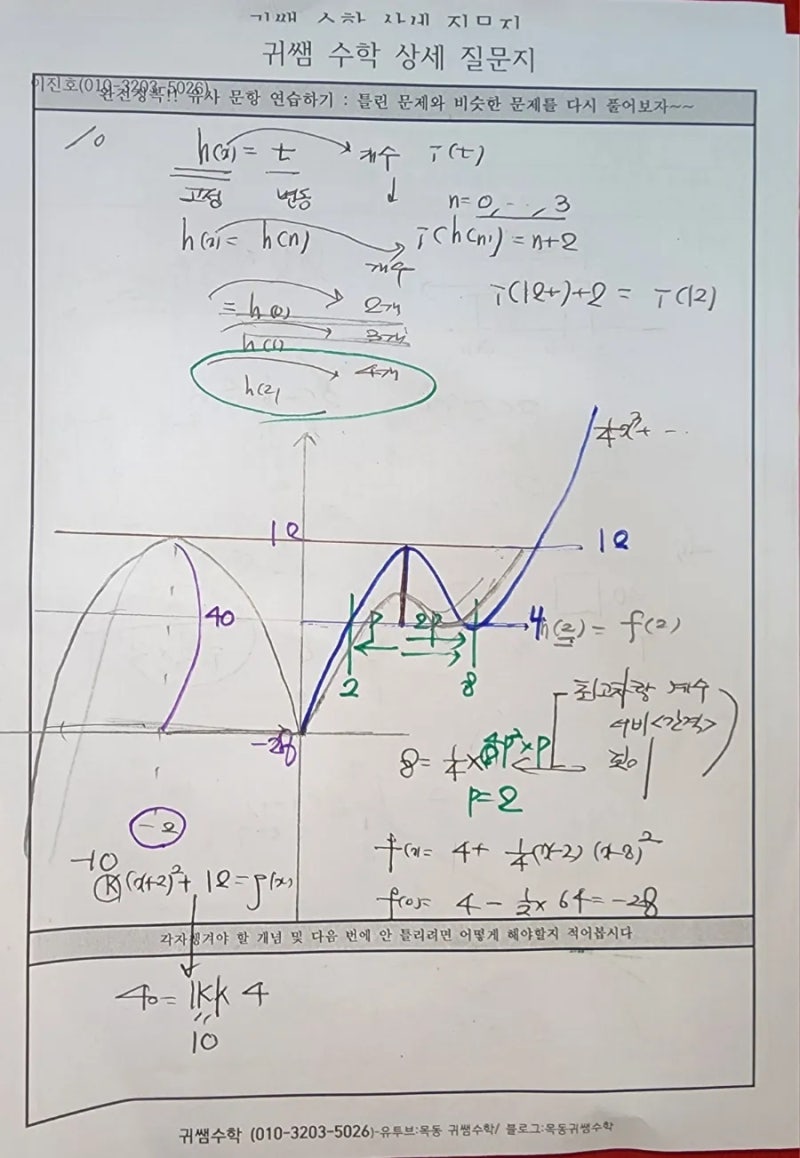 귀쌤 수학 상세 질문지
이진호(010-3203-5026)
완전정복!! 유사 문항 연습하기 : 틀린 문제와 비슷한 문제를 다시 풀어보자~~
10
h(x) = t 개수 T(t)
고정 변동
n=0, ..., 3
h(x) = h(n) T(h(n)) = n+2
개수
T(12+)+2 = T(12)
= h(0) 2개
h(1) 3개
h(2) 4개
¼x³+ ...
12 12
40 p 2p 4 h(2) = f(2)
2 8
최고차항 계수
-28 너비<간격>
8= ¼×4p²×p
p=2
-2
f(x)= 4+ ¼(x-2)(x-8)²
-10
k(x+2)²+12=g(x)
f(0)= 4 - ½×64=-28
각자챙겨야 할 개념 및 다음 번에 안 틀리려면 어떻게 해야할지 적어봅시다
40= |k|× 4
10
귀쌤수학 (010-3203-5026)-유투브:목동 귀쌤수학/ 블로그:목동귀쌤수학